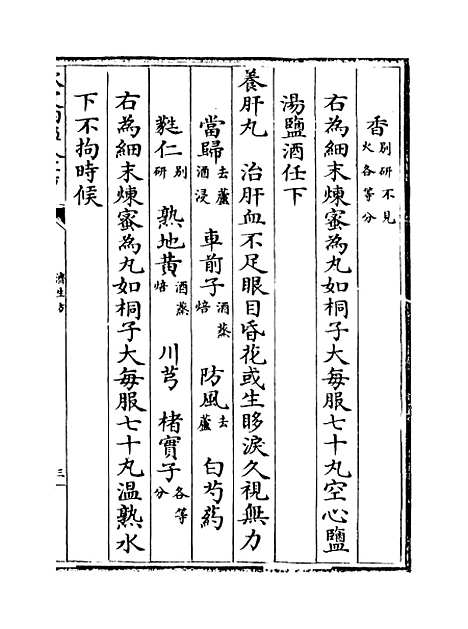 香別研不見火各等分
右為細末煉蜜為丸如桐子大每服七十丸空心鹽
湯鹽酒任下
養肝丸　治肝血不足眼目昏花或生眵淚久視無力
當歸去蘆酒浸　車前子酒蒸焙　防風去蘆　白芍藥
蕤仁別研　熟地黄酒蒸焙　川芎　楮實子各等分
右為細末煉蜜為丸如桐子大每服七十丸温熟水
下不拘時候
濟生方
三